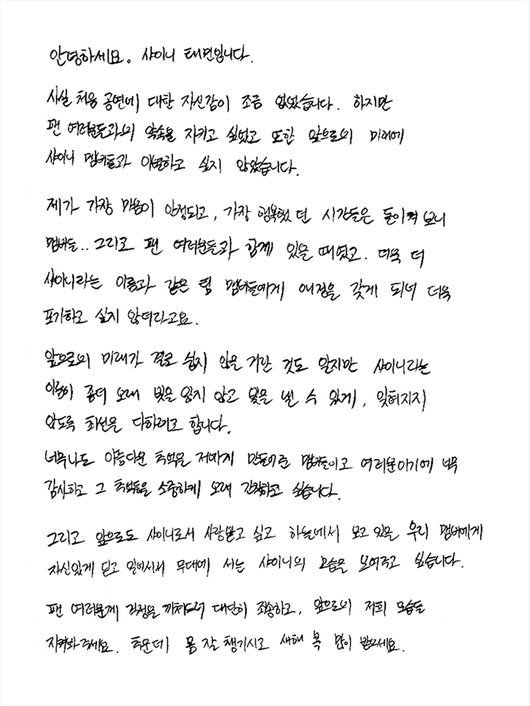 안녕하세요. 샤이니 태민입니다.
사실 처음 공연에 대한 자신감이 조금 없었습니다. 하지만
팬 여러분들과의 약속을 지키고 싶었고 또한 앞으로의 미래에
샤이니 멤버들과 이별하고 싶지 않았습니다.
제가 가장 마음이 안정되고, 가장 행복했던 시간들은 돌이켜 보니
멤버들.. 그리고 팬 여러분들과 함께 있을 때였고. 더욱 더
샤이니라는 이름과 같은 팀 멤버들에게 애정을 갖게 되어 더욱
포기하고 싶지 않더라고요.
앞으로의 미래가 결코 쉽지 않을 거란 것도 알지만 샤이니라는
이름이 좀더 오래 빛을 잃지 않고 빛을 낼 수 있게, 잊혀지지
않도록 최선을 다하려고 합니다.
너무나도 아름다운 추억을 저에게 만들어준 멤버들이고 여러분이기에 너무
감사하고 그 추억들을 소중하게 오래 간직하고 싶습니다.
그리고 앞으로도 샤이니로서 사랑받고 싶고 하늘에서 보고 있을 우리 멤버에게
자신있게 딛고 일어서서 무대에 서는 샤이니의 모습을 보여주고 싶습니다.
팬 여러분께 걱정을 끼쳐드려 대단히 죄송하고, 앞으로의 저희 모습들
지켜봐주세요. 추운데 몸 잘 챙기시고 새해 복 많이 받으세요.